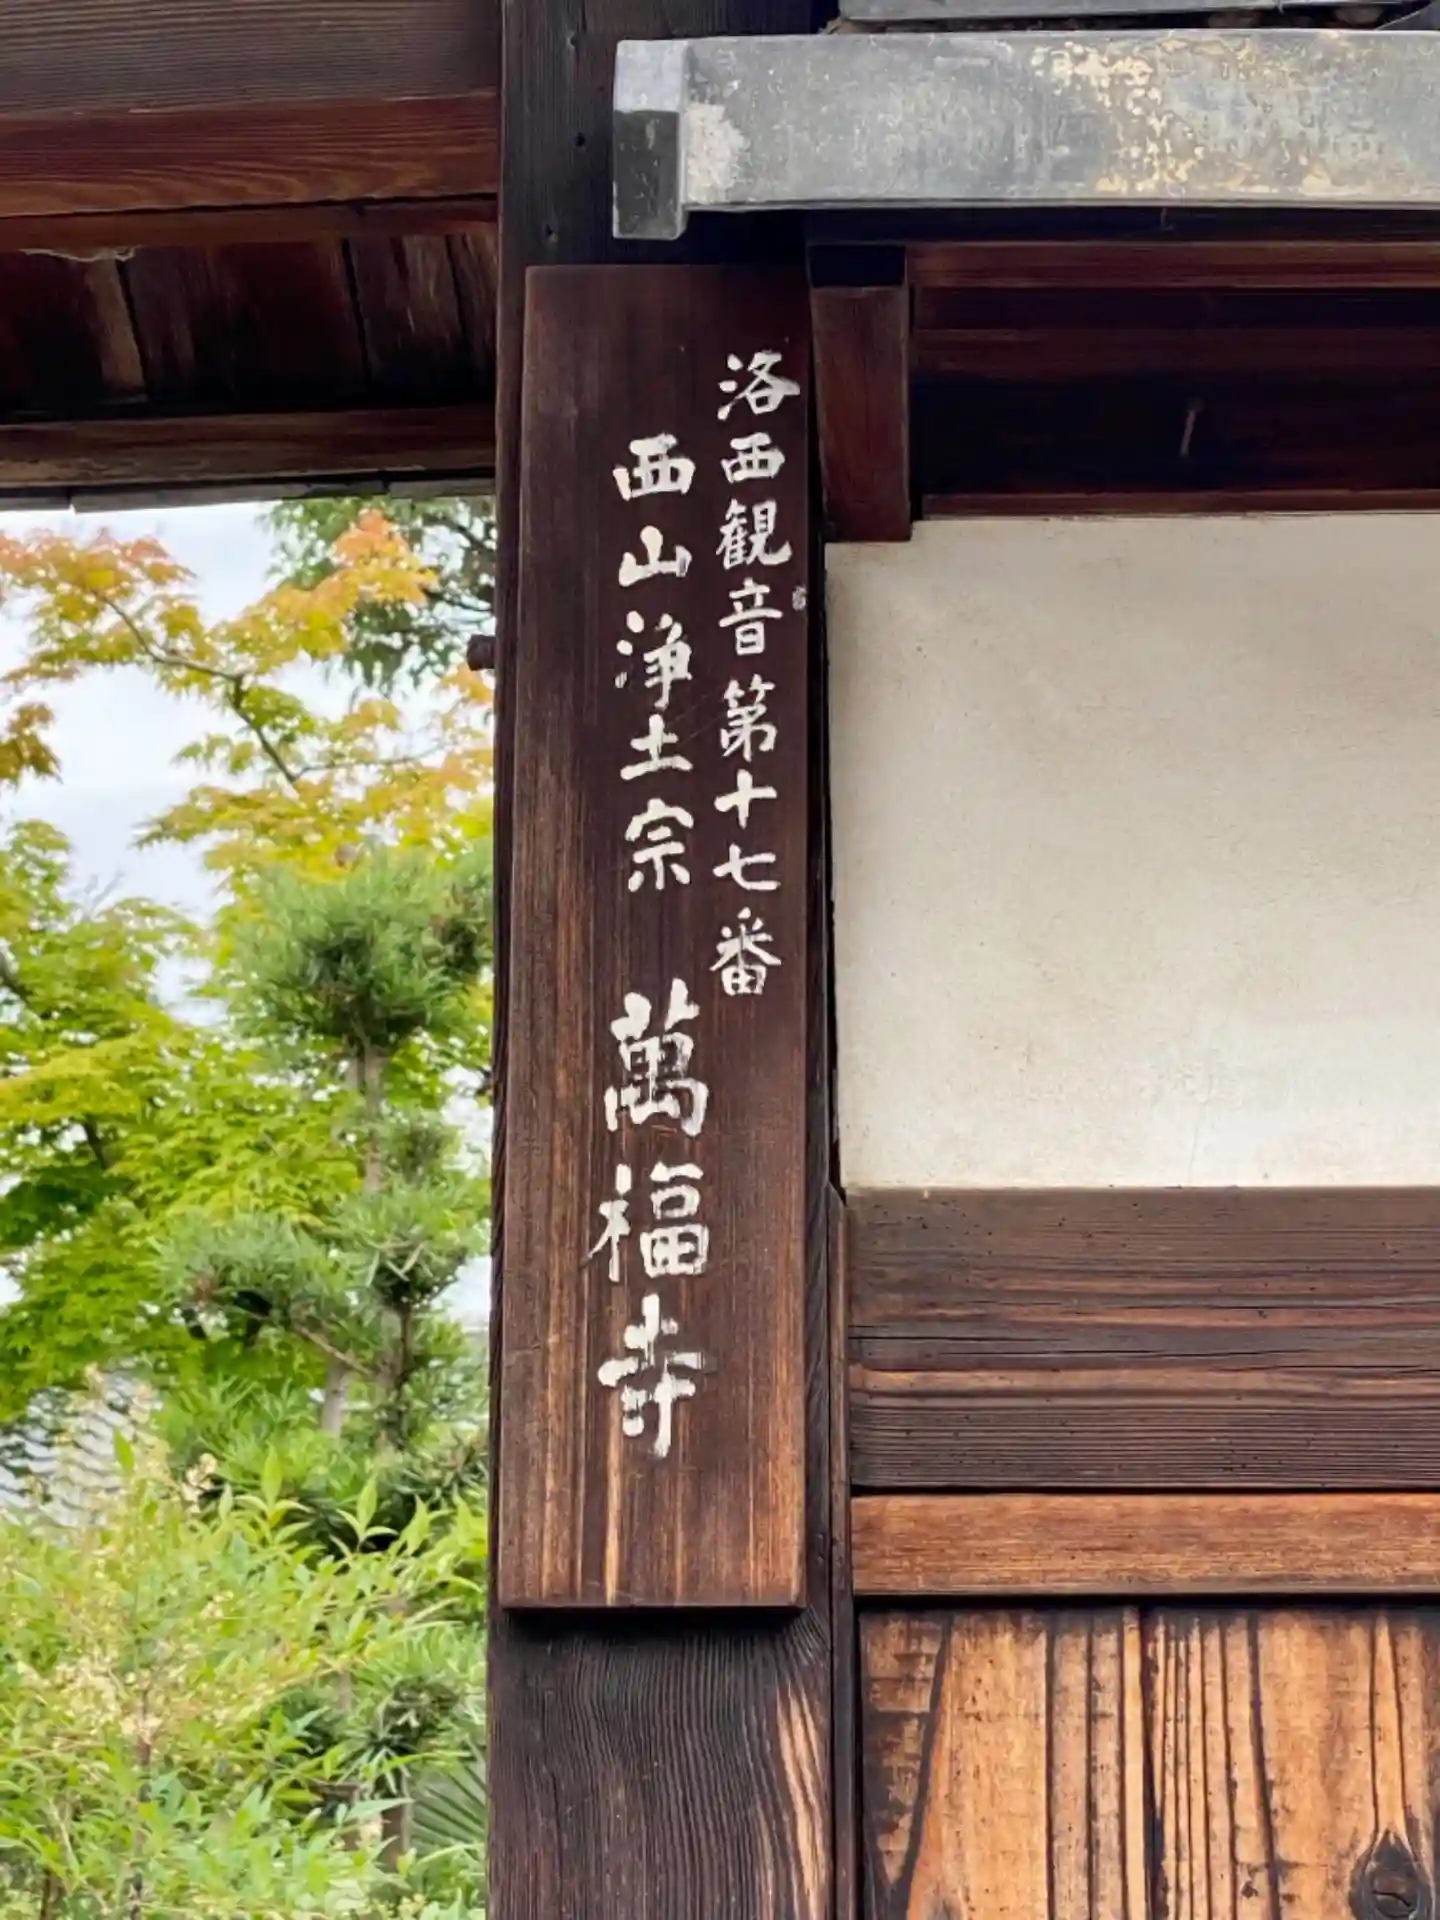 洛西観音第十七番
西山浄土宗 萬福寺